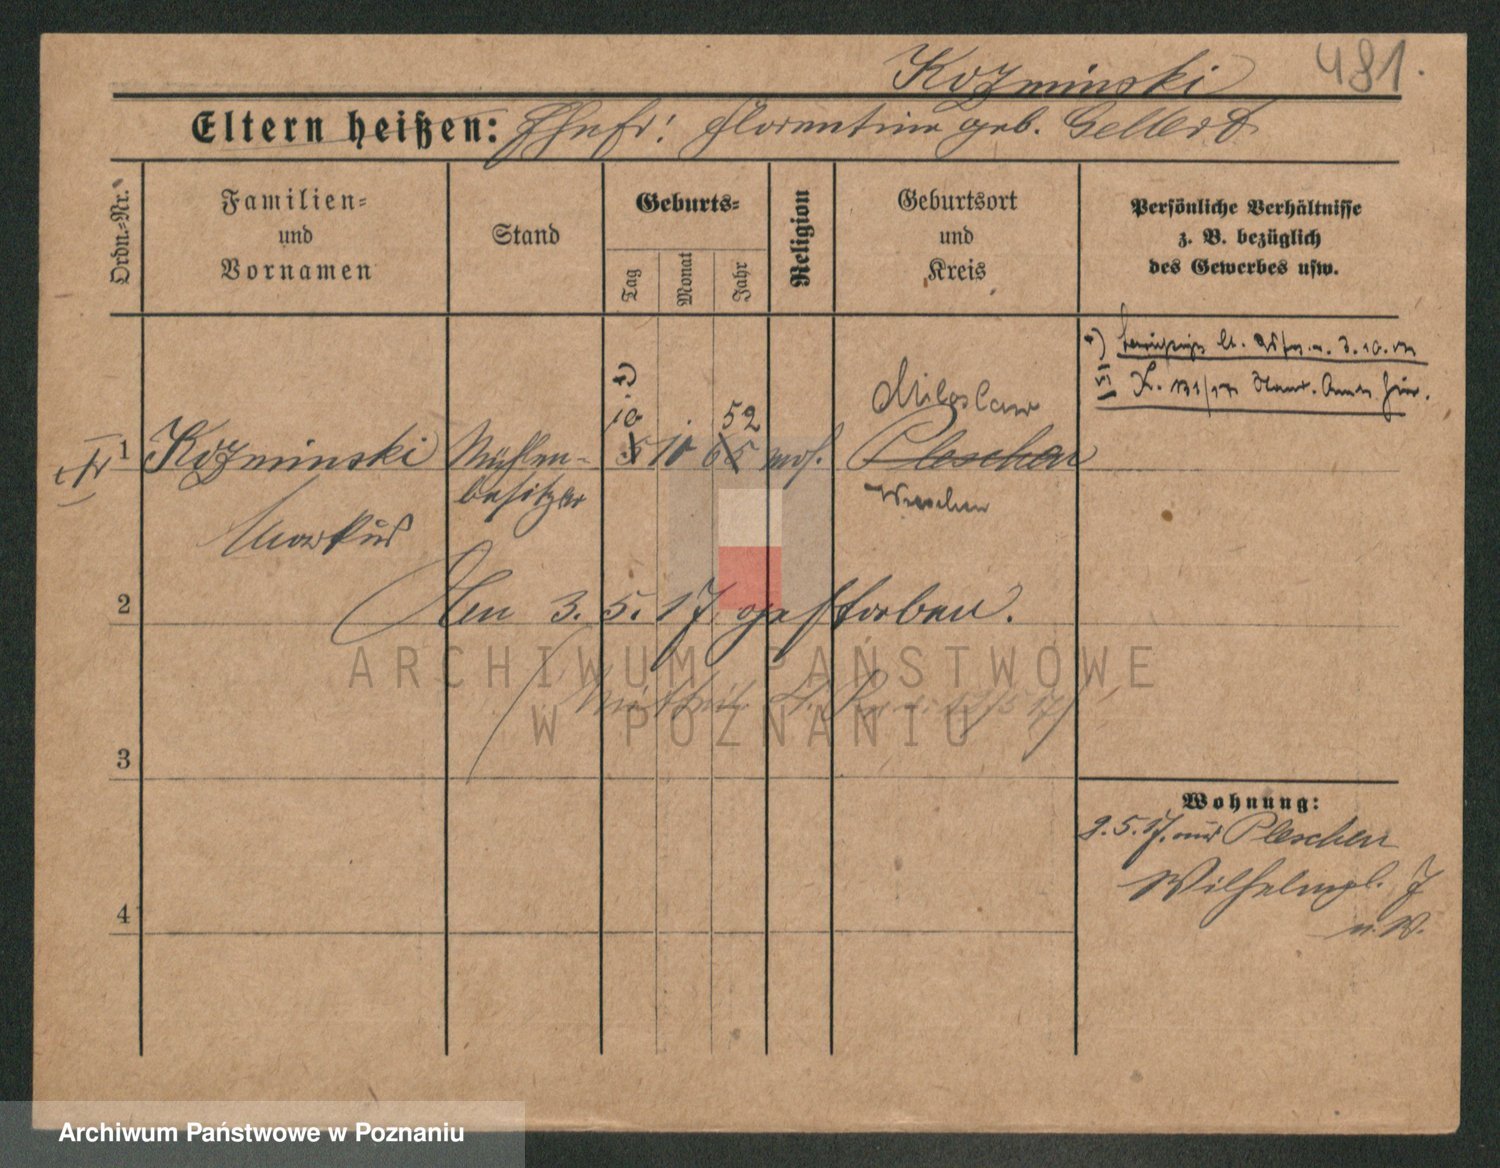 Kozminski 481.
Eltern heißen: Ehefr: Florentine geb. Gellert
Ordn.-Nr.
Familien-
und
Vornamen
Stand
Geburts-
Tag
Monat
Jahr
Religion
Geburtsort
und
Kreis
Persönliche Verhältnisse
z. B. bezüglich
des Gewerbes usw.
lt. 3.10.
Miloslaw
10. 52
1 Kozminski Mühlen- 5 10 65 mos. Pleschen
besitzer Wreschen
Markus
2 Den 3. 5. 17 gestorben.
ARCHIWUM PAŃSTWOWE
W POZNANIU
3
Wohnung:
9.5.17. aus Pleschen
Wilhelmpl. 7
4
u. W.
Archiwum Państwowe w Poznaniu